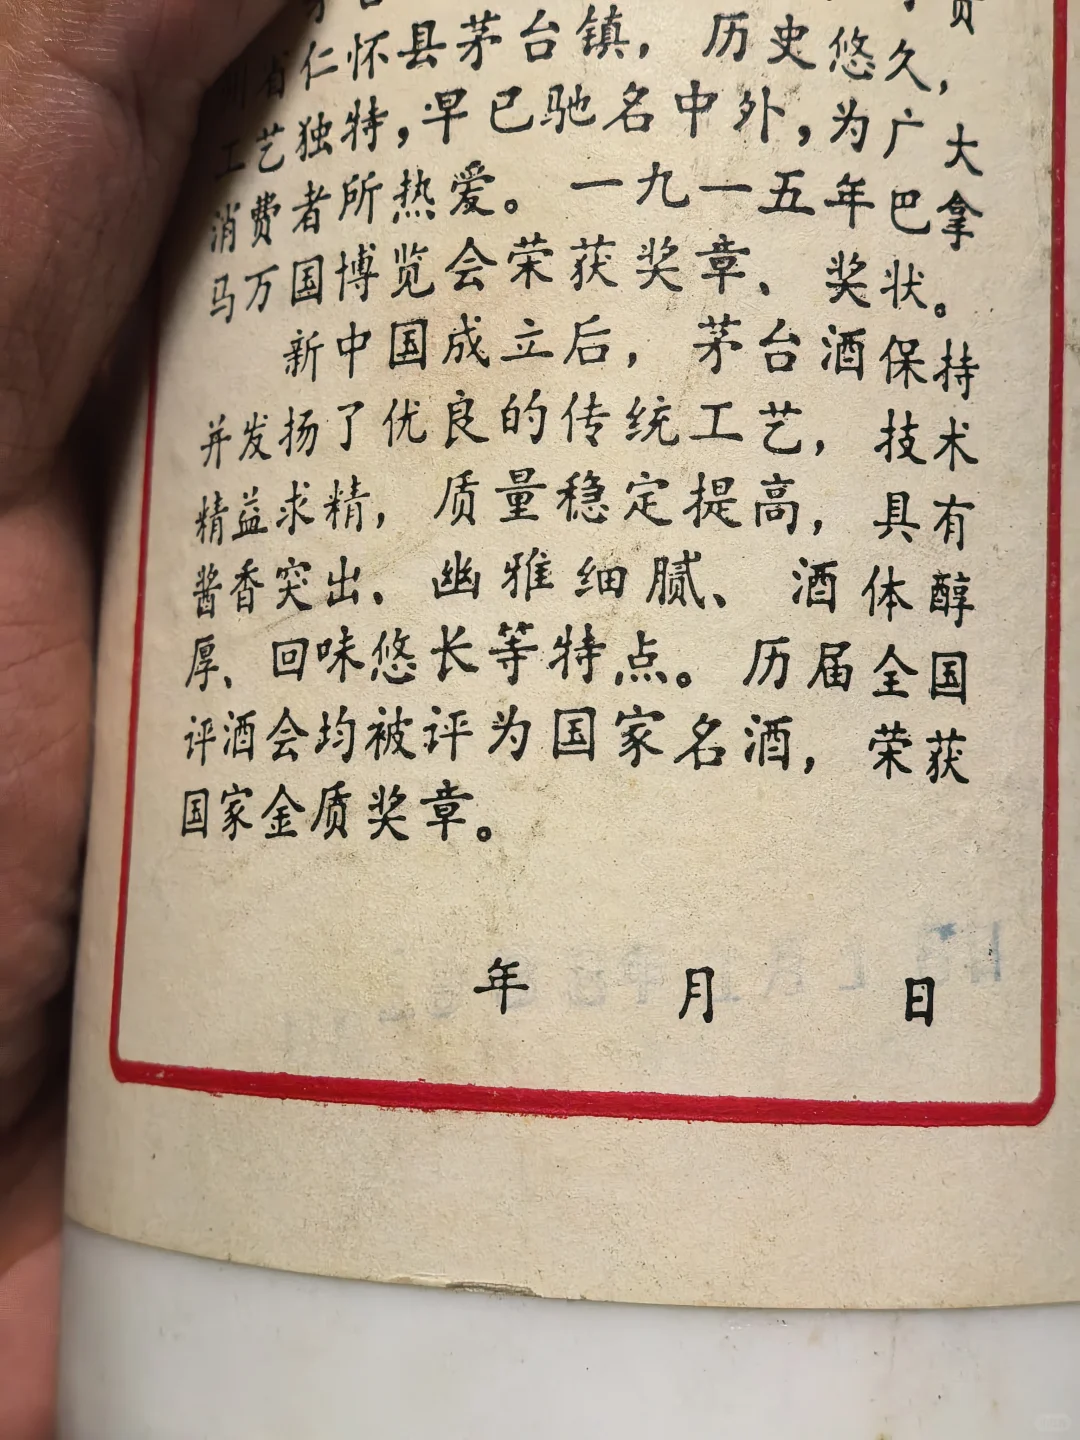 州省仁怀县茅台镇，历史悠久，
工艺独特，早已驰名中外，为广大
消费者所热爱。一九一五年巴拿
马万国博览会荣获奖章、奖状。
新中国成立后，茅台酒保持
并发扬了优良的传统工艺，技术
精益求精，质量稳定提高，具有
酱香突出、幽雅细腻、酒体醇
厚、回味悠长等特点。历届全国
评酒会均被评为国家名酒，荣获
国家金质奖章。
年 月 日